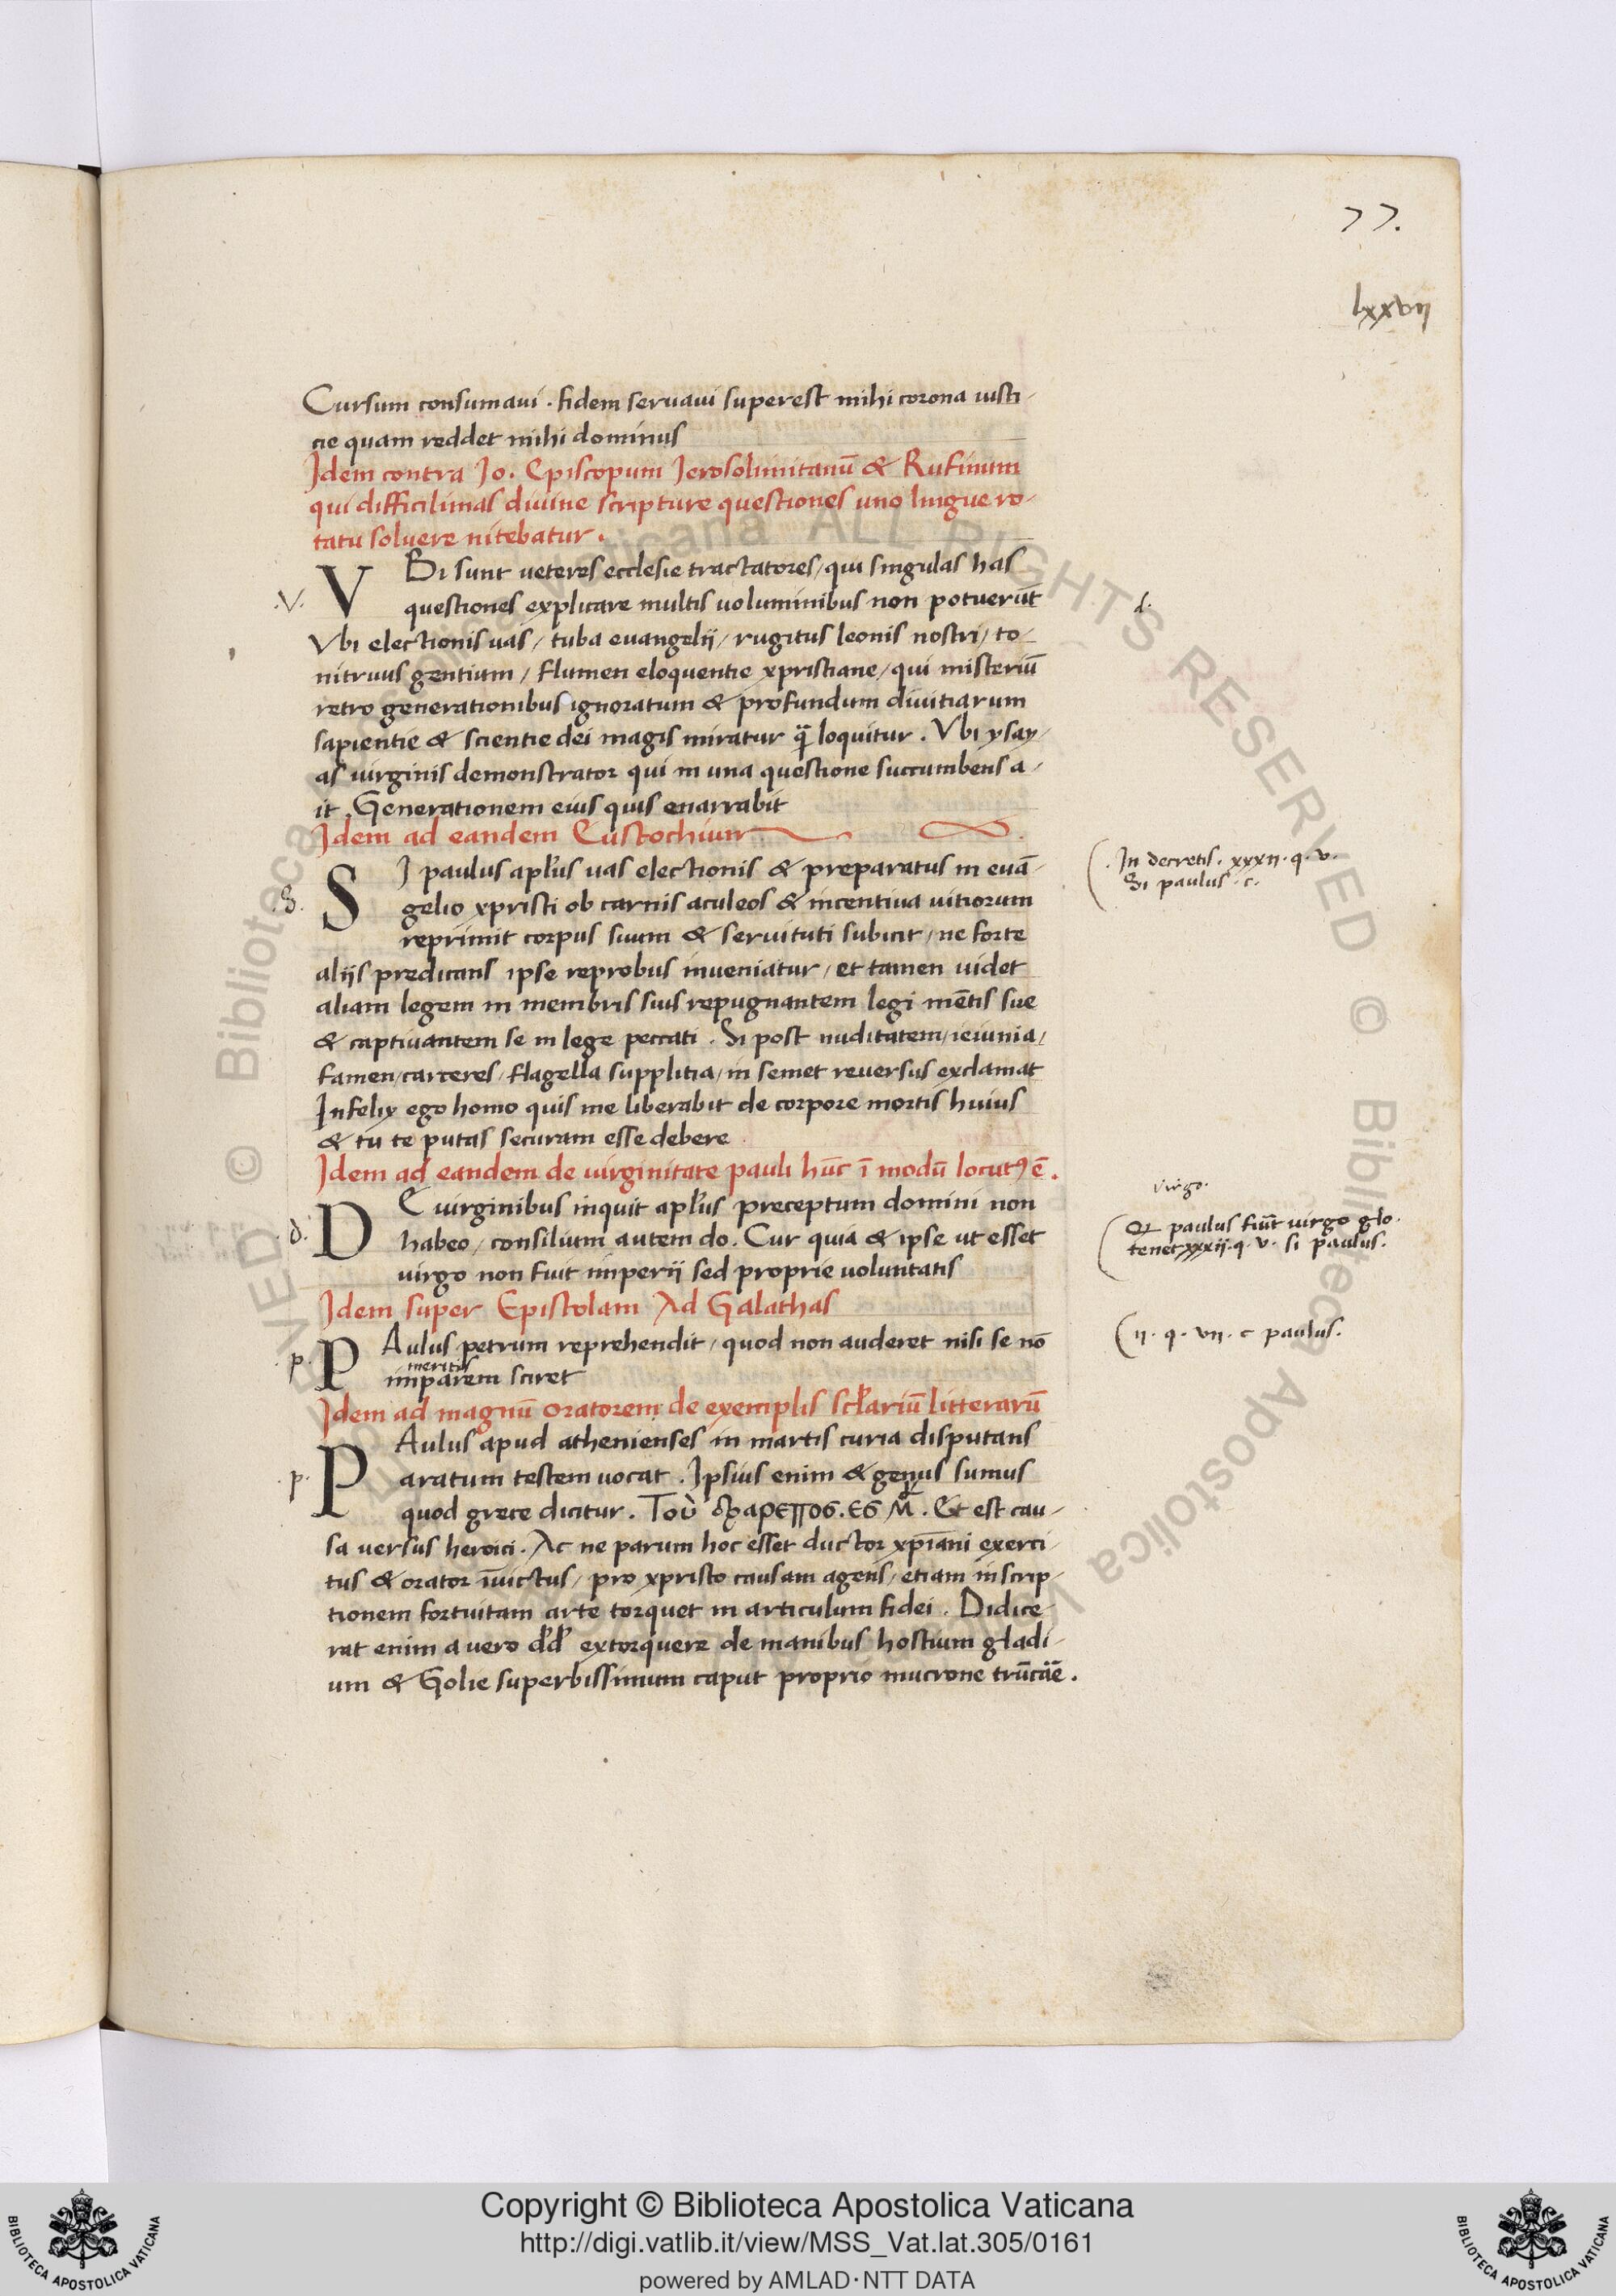 77.
lxxvii
Cursum consumaui. fidem seruaui superest mihi corona iusti-
cie quam reddet mihi dominus
Idem contra Jo. Episcopum Jerosolimitanū & Rufinum
qui difficilimas diuine scripture questiones uno lingue ro-
tatu soluere nitebatur.
.v. V Bi sunt ueteres ecclesie tractatores/ qui singulas has
questiones explicare multis uoluminibus non potuerūt
d.
Vbi electionis uas/ tuba euangelij/ rugitus leonis nostri/ to-
nitruus gentium/ flumen eloquentie xpristiane/ qui misteriū
retro generationibus ignoratum & profundum diuitiarum
sapientie & scientie dei magis miratur q̄ loquitur. Vbi ysay-
as uirginis demonstrator qui in una questione succumbens a-
it. Generationem eius quis enarrabit
Idem ad eandem Eustochium
.S. S I paulus apl's uas electionis & preparatus in euā-
gelio xpristi ob carnis aculeos & incentiua uitiorum
(. In decretis. xxxii. q. v.
Si paulus. c.
reprimit corpus suum & seruituti subicit/ ne forte
alijs predicans ipse reprobus inueniatur/ et tamen uidet
aliam legem in membris suis repugnantem legi mētis sue
& captiuantem se in lege peccati. Si post nuditatem/ ieiunia/
famen/ carceres/ flagella supplitia/ in semet reuersus exclamat
Infelix ego homo quis me liberabit de corpore mortis huius
& tu te putas securam esse debere
Idem ad eandem de uirginitate pauli hūc ī modū locut9 ē.
virgo.
.d. D E uirginibus inquit apl's preceptum domini non
habeo/ consilium autem do. Cur quia & ipse ut esset
uirgo non fuit imperij sed proprie uoluntatis
paulus fuit uirgo glo.
tenet xxxii. q. v. si paulus.
Idem super Epistolam Ad Galathas
.p. P Aulus petrum reprehendit/ quod non auderet nisi se nō
meritis
imparem sciret
(ii. q. vii. c paulus.
Idem ad magnū oratorem de exemplis scl'ariū litterarū
.p. P Aulus apud athenienses in martis curia disputans
aratum testem uocat. Ipsius enim & genus sumus
quod grece dicitur. Et est cau-
sa uersus heroici. Ac ne parum hoc esset ductor xp̄iani exerci-
tus & orator īuictus/ pro xpristo causam agens/ etiam inscrip-
tionem fortuitam arte torquet in articulum fidei. Didice-
rat enim a uero d'd' extorquere de manibus hostium gladi-
um & Golie superbissimum caput proprio mucrone trūcāe.
Copyright © Biblioteca Apostolica Vaticana
http://digi.vatlib.it/view/MSS_Vat.lat.305/0161
powered by AMLAD·NTT DATA
BIBLIOTECA APOSTOLICA VATICANA
BIBLIOTECA APOSTOLICA VATICANA